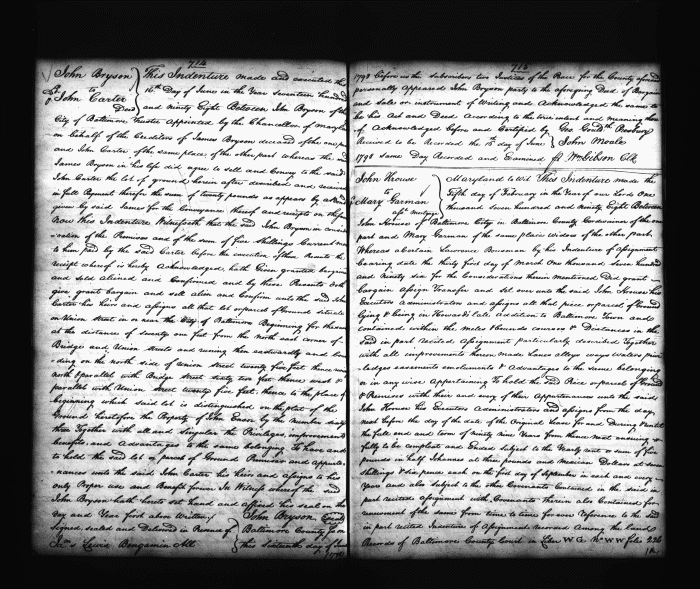 714
John Bryson
to
John Carter
Deed
This Indenture made and executed this
16th Day of June in the Year seventeen hundred
and ninety Eight Between John Bryson of the
City of Baltimore Trustee appointed by the Chancellor of Maryland
on behalf of the Creditors of James Bryson deceased of the one part
and John Carter of the same place, of the other part whereas the said
James Bryson in his life did agree to sell and Convey to the said
John Carter the lot of ground herein after demised and received
in full Payment therefor the sum of twenty pounds as appears by a Bond
given by said James for the Conveyance thereof and receipts on the same
Now this Indenture Witnesseth that the said John Bryson in consid
eration of the Premises and of the sum of five Shillings Current money
to him paid by the said Carter before the execution of these Presents the
receipt whereof is hereby Acknowledged, hath Given granted bargained
and sold aliened and Confirmed and by these Presents doth
give grant bargain and sell alien and Confirm unto the said John
Carter his heirs and assigns all that lot or parcel of Ground situate
on Union Street in or near the City of Baltimore Beginning for the same
at the distance of seventy one feet from the north east corner of
Bridge and Union Streets and runing then eastwardly and bin
ding on the north side of Union street twenty five feet thence
north & parallel with Bridge street sixty two feet thence west &
parallel with Union street twenty five feet; thence to the place of
beginning which said lot is distinguished on the plat of the
Ground heretofore the Property of John Ensor by the number sixty
three Together with all and singular the Privileges improvements
benefits and advantages to the same belonging To have and
to hold the said lot or parcel of Ground Premises and appurte
nances unto the said John Carter his Heirs and assigns to his
only Proper use and Benefit forever In Witness whereof the said
John Bryson hath hereto set hand and affixed his seal on the
Day and Year first above Written
John Bryson
Signed, sealed and Delivered in Presence of
Lewis Benjamin All
Baltimore County
this sixteenth day of June
1798
715
1798 before us the subscribers two Justices of the Peace for the County aforesaid
personally appeared John Bryson party to the aforegoing Deed of Bargain
and sale or instrument of Writing and Acknowledged the same to
be his Act and Deed According to the true intent and meaning there
of Acknowledged Before and Certified by Geo Gouldth Presbury
Received to be Recorded the 18 day of June John Moale
1798 Same Day Recorded and Examined Wm Gibson Clk
John House
to
Mary Garman
assgt mortgage
Maryland to Wit This Indenture made the
Fifth day of February in the Year of our Lord One
thousand seven hundred and ninety Eight Between
John House of Baltimore City in Baltimore County Cordwainer of the one
part and Mary Garman of the same place Widow of the other part.
Whereas a certain Lawrence by his Indenture of Assignment
bearing date the thirty first day of March One thousand, seven hundred
and Ninety six for the Considerations therein mentioned Did grant
Bargain Assign Transfer and set over unto the said John House his
Executors Administrators and assigns all that piece or parcel of Ground
lying & being in Howards late Addition to Baltimore Town and
contained within the Miles & bounds courses & Distances in the
said in part recited Assignment particularly described Together
with all improvements thereon made Lanes alleys ways waters privi
ledges easements emoluments & Advantages to the same belonging
or in any wise Appertaining To hold the said Piece or parcel of Ground
& Premises with their and every of their Appurtenances unto the said
John House his Executors Administrators and assigns from the day
next before the day of the date of the Original Lease for and During & until
the full end and term of Ninety Nine Years from thence next ensuing &
fully to be compleat and Ended Subject to the Yearly rent or sum of five
pounds in half Johanes at three pounds and Mexican Dollars at seven
shillings & six pence each on the first day of September in each and every
Year and also subject to the other Covenants Contained in the said in
part recited assignment with Covenants therein also Contained for
renewment of the same from time to time for ever Reference to the said
in part recited Indenture of Assignment recorded Among the land
Records of Baltimore County Court in Liber W G No W W folio 226